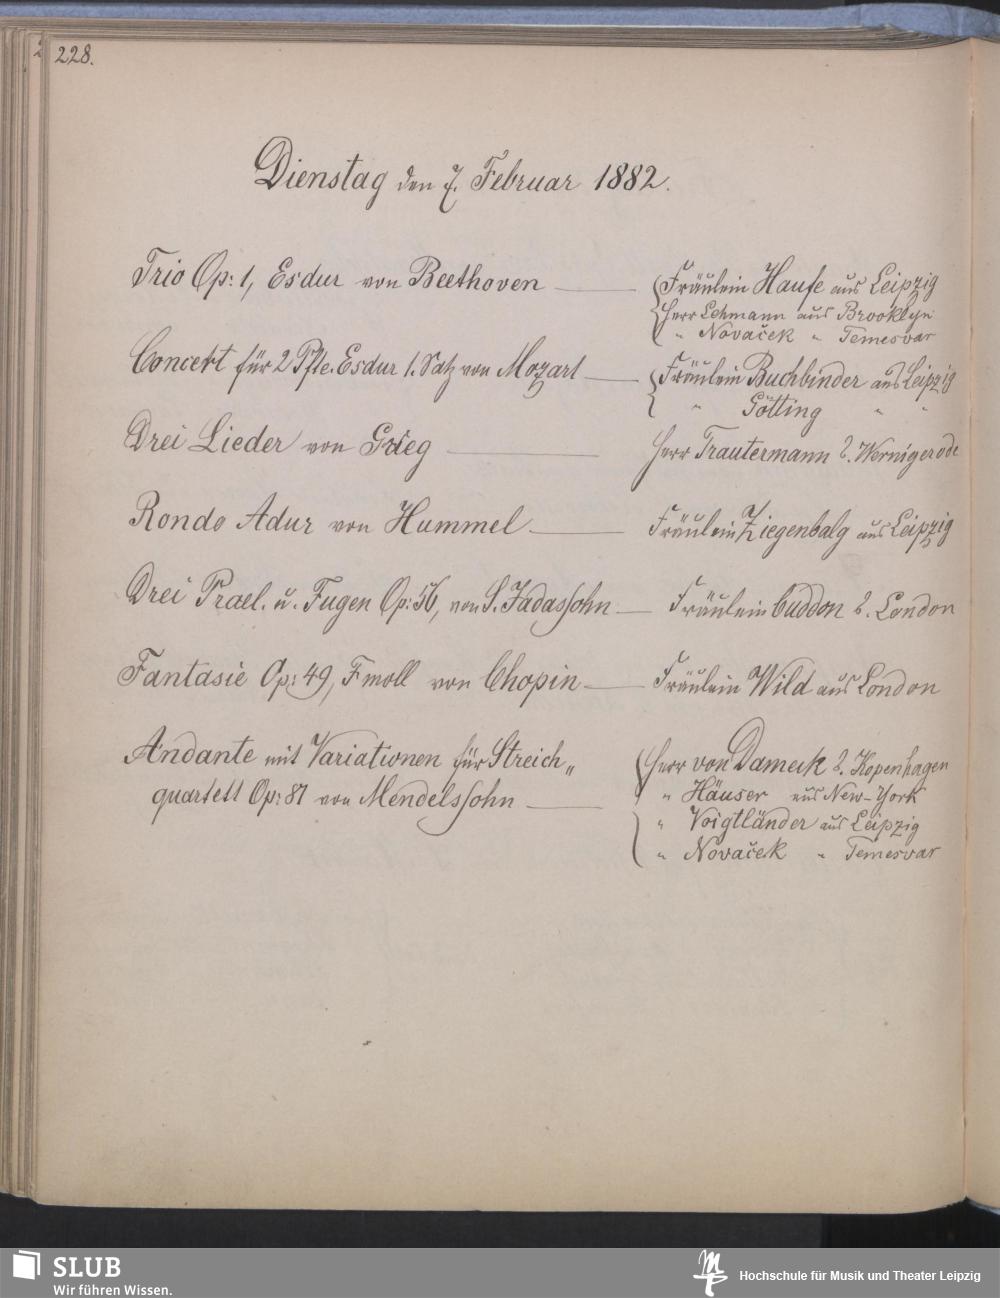 228.
Dienstag den 7. Februar 1882.
Trio Op: 1, Esdur von Beethoven — Fräulein Haufe aus Leipzig
Herr Lehmann aus Brooklyn
" Novaček " Temesvar
Concert für 2 Pfte. Esdur 1. Satz von Mozart — Fräulein Buchbinder aus Leipzig
" Götting " "
Drei Lieder von Grieg — Herr Trautermann a. Wernigerode
Rondo Adur von Hummel — Fräulein Ziegenbalg aus Leipzig
Drei Prael. u. Fugen Op: 56, von S. Jadassohn — Fräulein Cuddon a. London
Fantasie Op: 49, Fmoll von Chopin — Fräulein Wild aus London
Andante mit Variationen für Streich„ Herr von Dameck a. Kopenhagen
quartett Op: 81 von Mendelssohn — " Häuser aus New-York
" Voigtländer aus Leipzig
" Novaček " Temesvar
SLUB
Wir führen Wissen.
Hochschule für Musik und Theater Leipzig